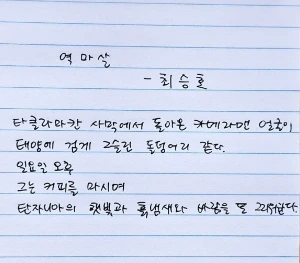 역마살
- 최승호
타클라마칸 사막에서 돌아온 카메라맨 얼굴이
태양에 검게 그슬린 돌덩어리 같다.
일요일 오후
그는 커피를 마시며
탄자니아의 햇빛과 흙냄새와 바람을 또 그리워한다.